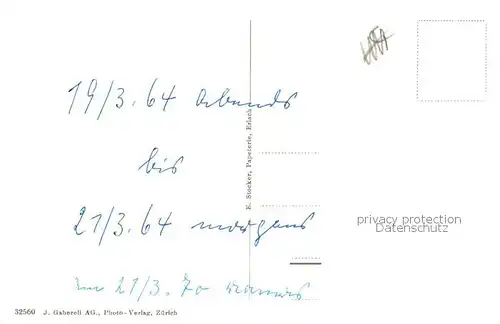 19/3.64 abends
bis
21/3.64 morgens
21/3.70
E. Stocker, Papeterie, Erlach
privacy protection
Datenschutz
32560 J. Gaberell AG., Photo-Verlag, Zürich